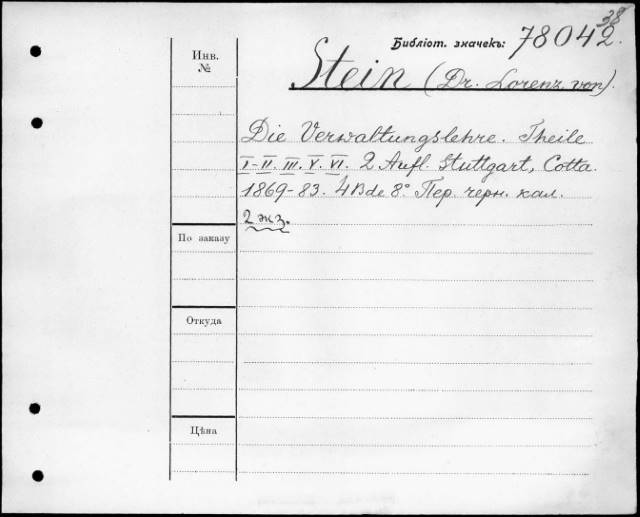 38
Библіот. значекъ: 78042.
Инв.
№
Stein (Dr. Lorenz von).
Die Verwaltungslehre. Theile
I-II. III. V. VI. 2 Aufl. Stuttgart, Cotta.
1869-83. 4 Bde 8° Пер. черн. кал.
2 экз.
По заказу
Откуда
Цѣна